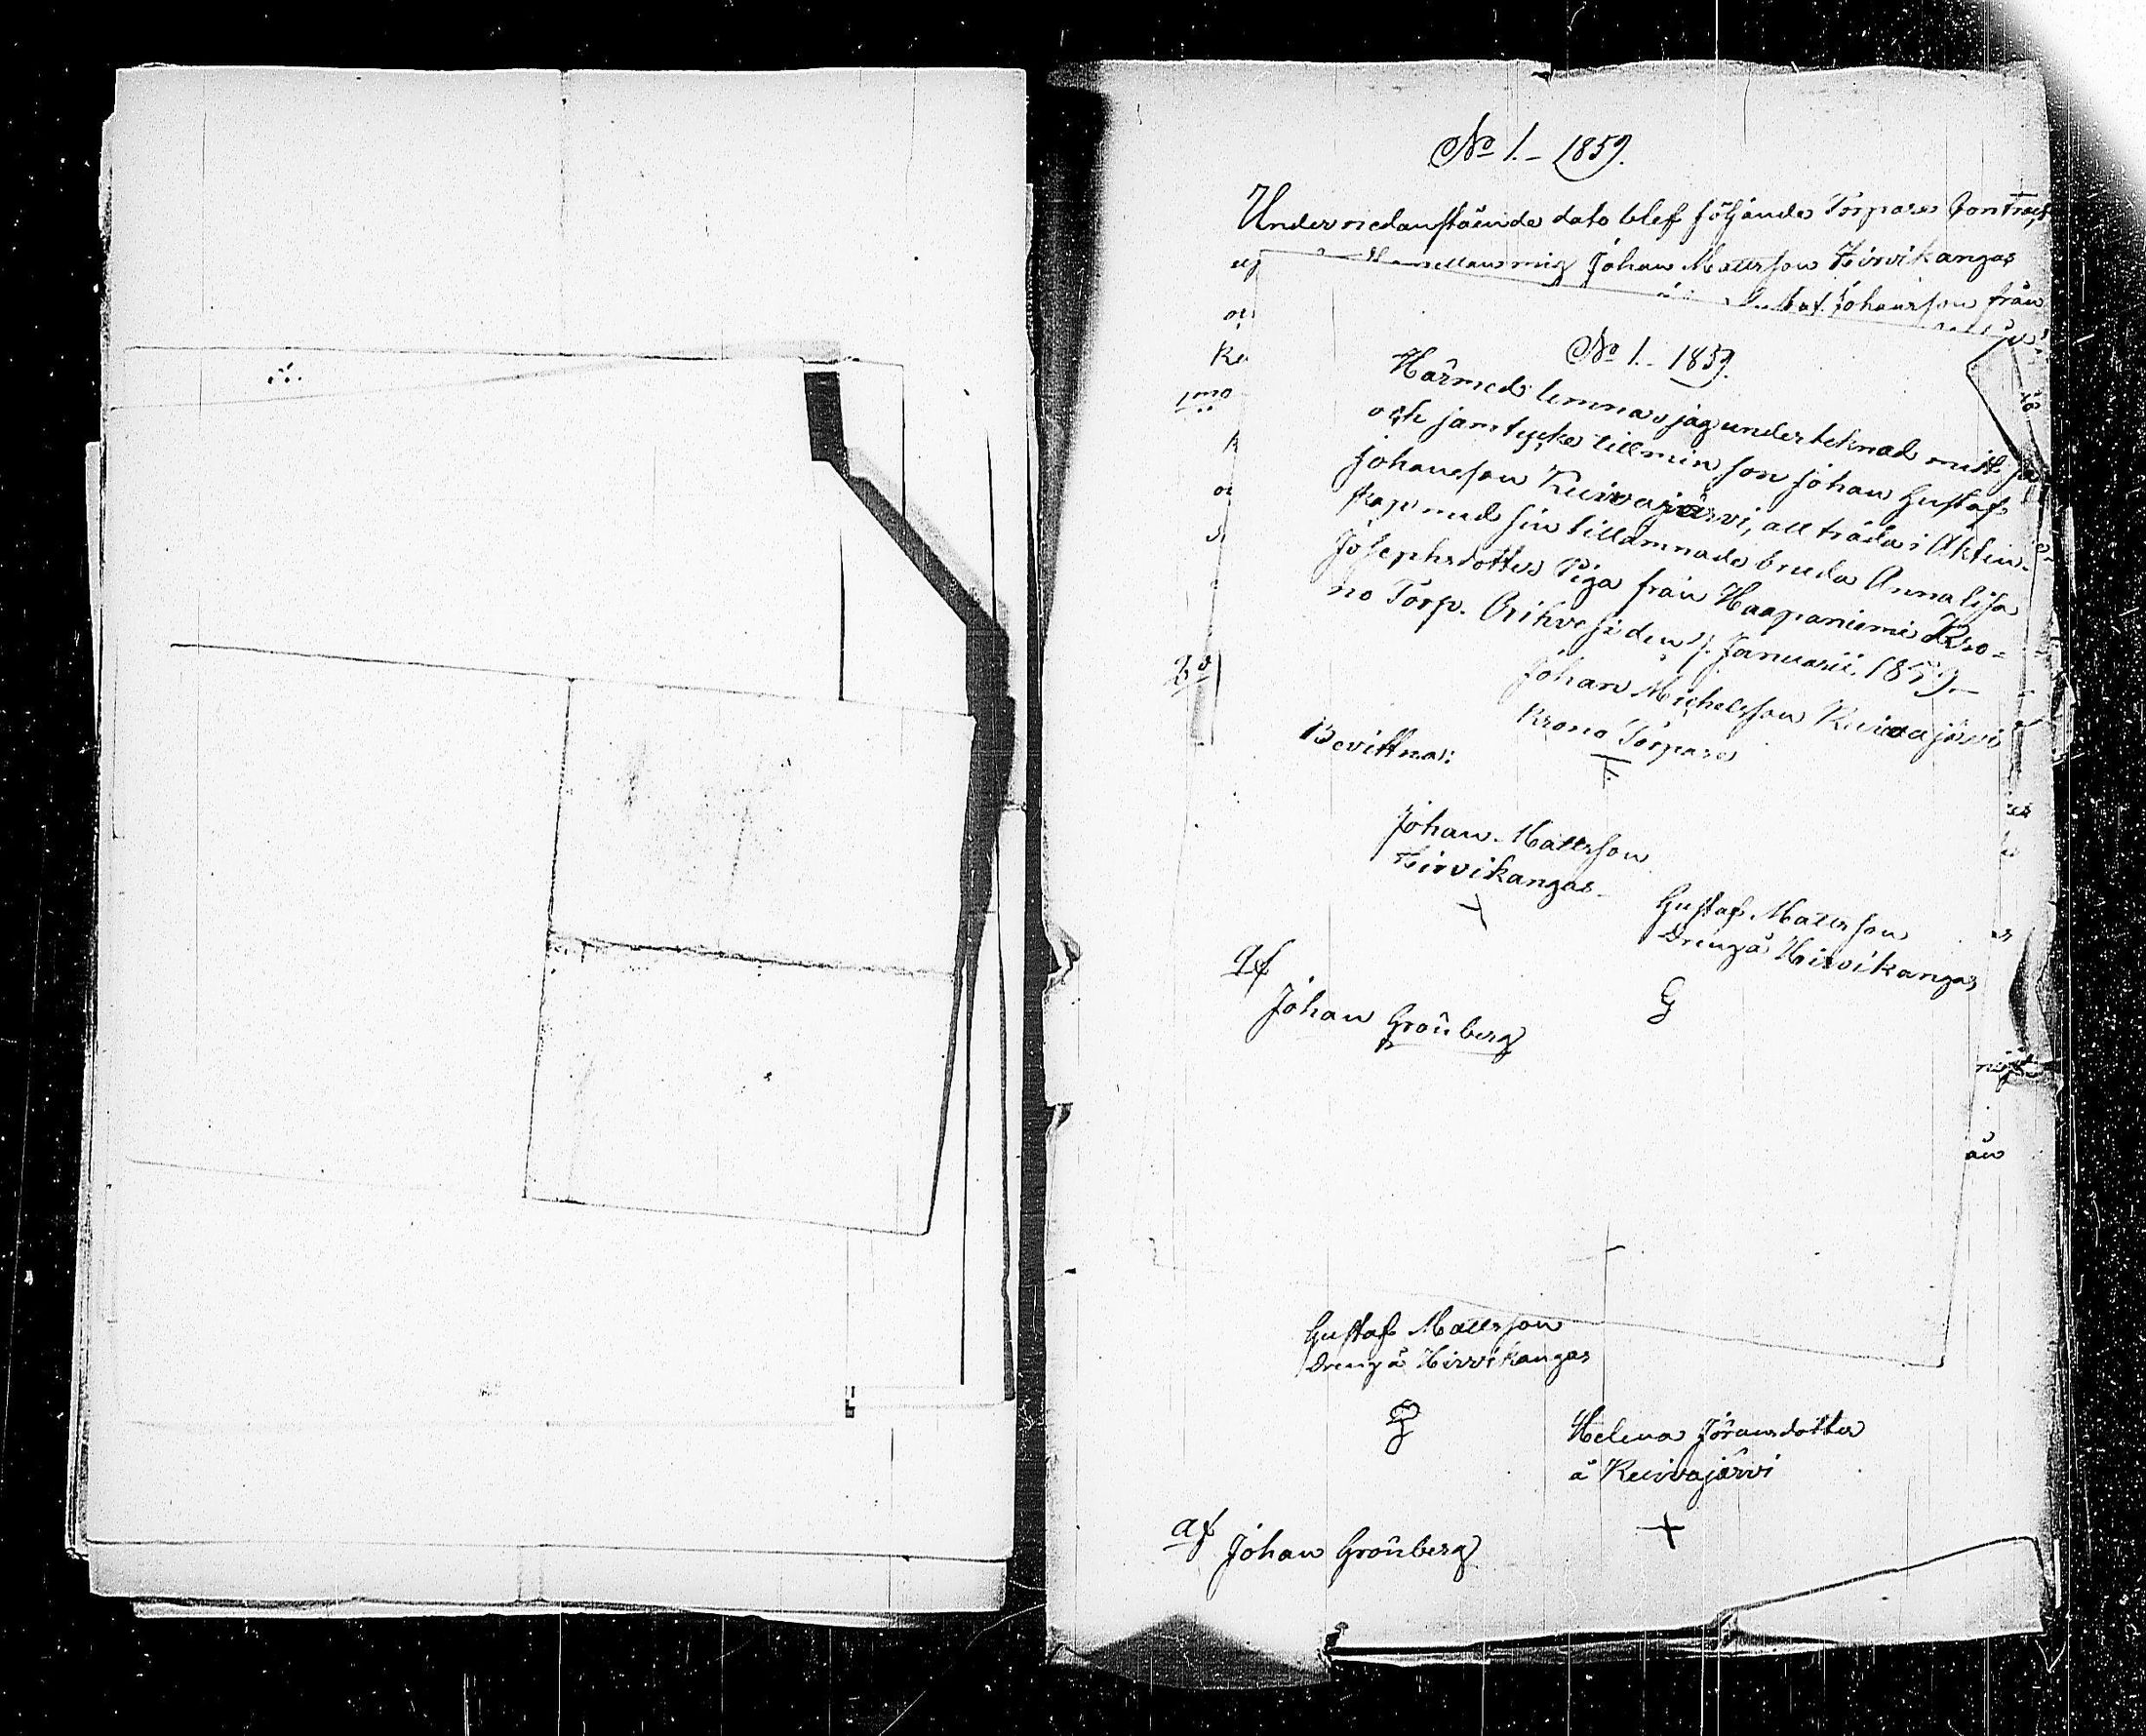 No 1. – 1859.
Undernedanstående dato blef följande Torpare Contract
mellan mig Johan Mattsson Hirvikangas
Johansson från
1mo
No 1. – 1859.
Härmed lemnar jag undertecknad mitt ja
och jamtycke till min son Johan Gustaf
Johansson Kuivajärvi, att träda i Äkten-
skap med sin tillämnade bruda Annalisa
Josephsdotter Piga från Haapaniemi Kro-
no Torp. Orihvesi den 7. Januarii 1859.–
Johan Michelsson Kuivajärvi
Krono Torpare
Bevittna:
Johan Mattsson
Hirvikangas
Gustaf Mattsson
Dreng å Hirvikangas
G
af
Johan Grönberg
än
Gustaf Mattsson
Dreng å Hirvikangas
Helena Jöransdotter
å Kuivajärvi
af Johan Grönberg